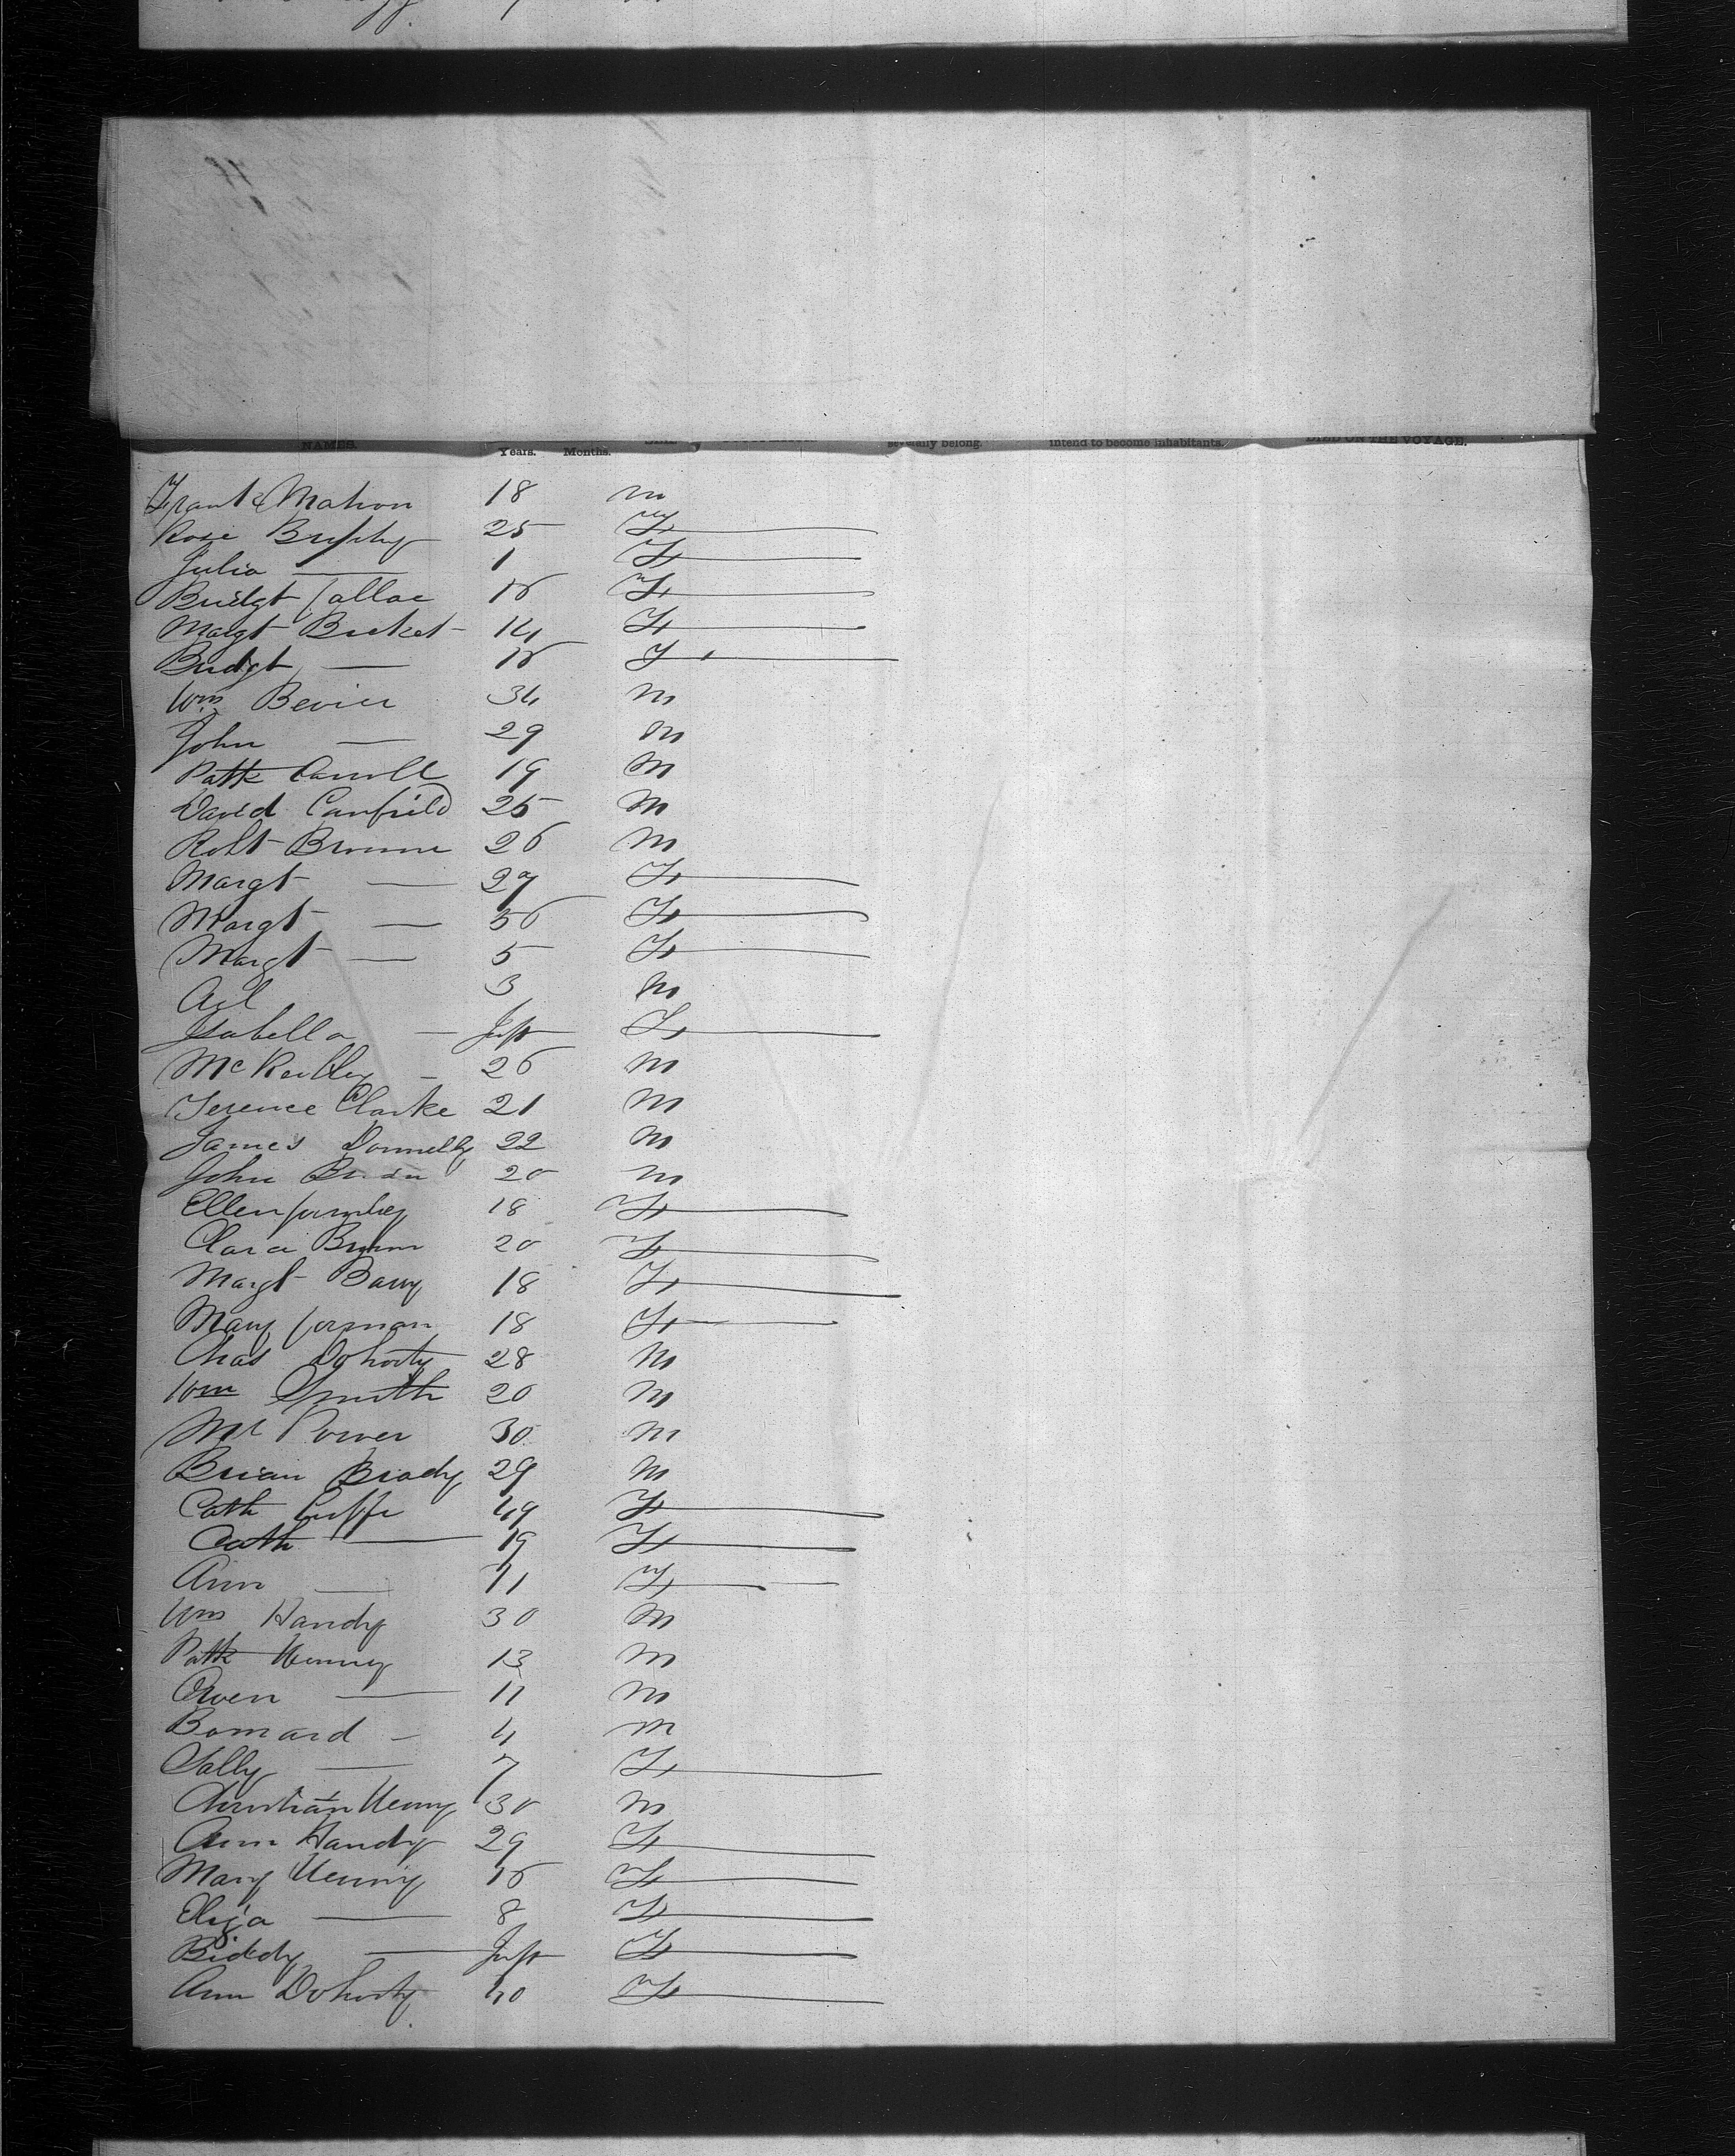 NAMES. Years. Months. intend to become inhabitants. DIED ON THE VOYAGE.
Frank Mahon 18 m
Rose Brophy 25 F
Julia — 1 F
Bridgt 16 F
Margt Bucket 14 F
Bridgt — 16 F
Wm Bevier 34 M
John — 29 M
Patk Carroll 19 M
David Canfield 25 M
Robt Browne 26 M
Margt — 27 F
Margt — 56 F
Margt — 5 F
3 M
Isabella — Inft F
McReilly — 26 M
Terence Clarke 21 M
James Donnelly 22 M
John 20 m
Ellen 18 F
Clara 20 F
Margt Barry 18 F
Mary Gorman 18 F
Chas Doherty 28 M
Wm Smith 20 M
Power 30 M
Brian Brady 29 M
Cath Cuffe 49 F
Cath — 19 F
Ann — 11 F
Wm Handy 30 M
Patk Henney 13 M
Owen — 11 M
Bornard — 4 M
Sally — 7 F
Christian 30 M
Ann Handy 29 F
Mary 16 F
Eliza — 8 F
Biddy — Inft F
Ann Doherty 40 F